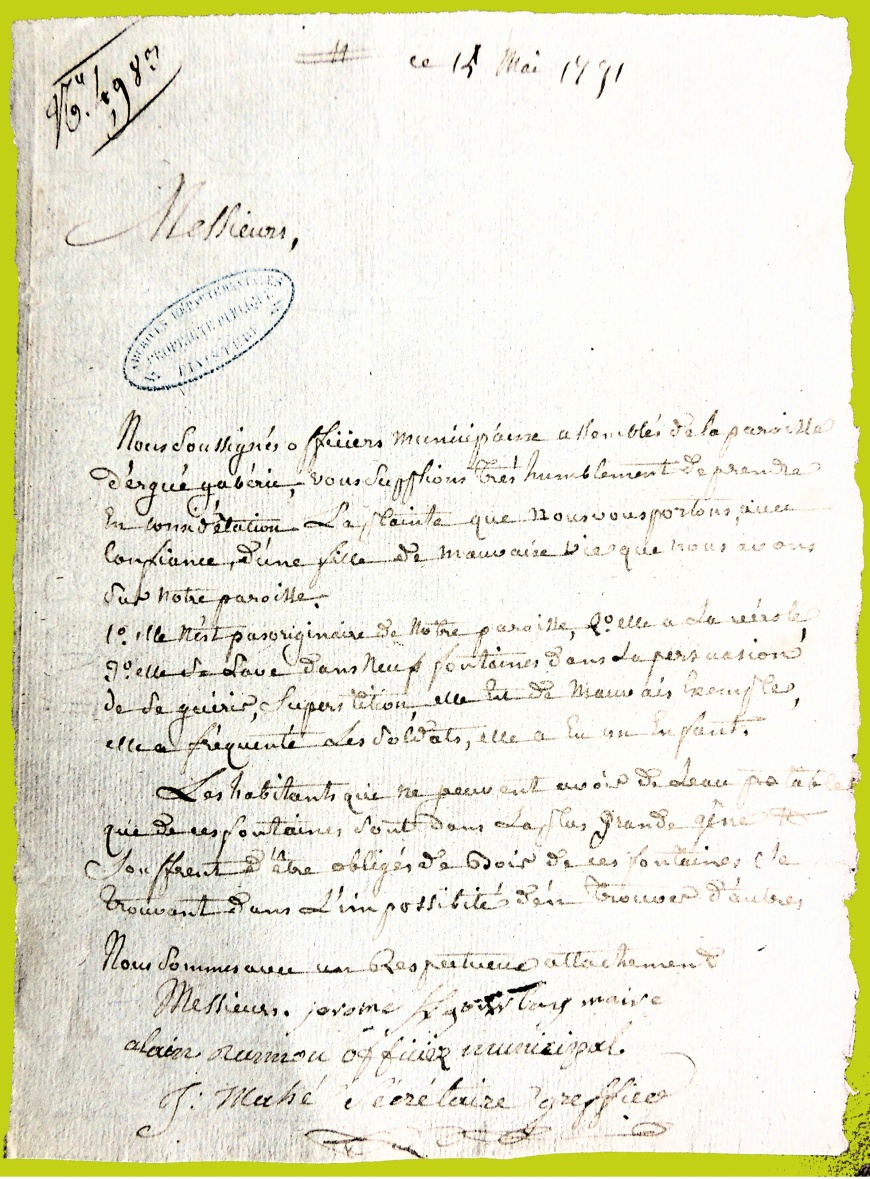 ce 15 Mai 1791
Messieurs,
ARCHIVES DEPARTEMENTALES
PROPRIETE PUBLIQUE
FINISTERE
Nous soussignés officiers municipaux assemblés de la paroisse
d'ergué gabéric, vous supplions trés humblement de prendre
En considération La plainte que nous vous portons, avec
Confiance, d'une fille de mauvaise vie que nous avons
Sur notre paroisse.
1º. elle n'est pas originaire de Notre paroisse, 2º. elle a La vérole
3º. elle se Lave dans Neuf fontaines dans La persuasion
de se guérir, Superstition, elle Est de Mauvais Exemple,
elle a fréquenté Les Soldats, elle a Eu un Enfant.
Les habitants qui ne peuvent avoir de Leau potable
que de ces fontaines sont dans La plus grande gêne et
Souffrent d'être obligés de Boir de ces fontaines Se
trouvant dans L'impossibité d'en trouver d'autres
Nous Sommes avec un Respectueux attachement
Messieurs. jerome maire
alain rannou officier municipal.
J: Mahé Sécrétaire greffier